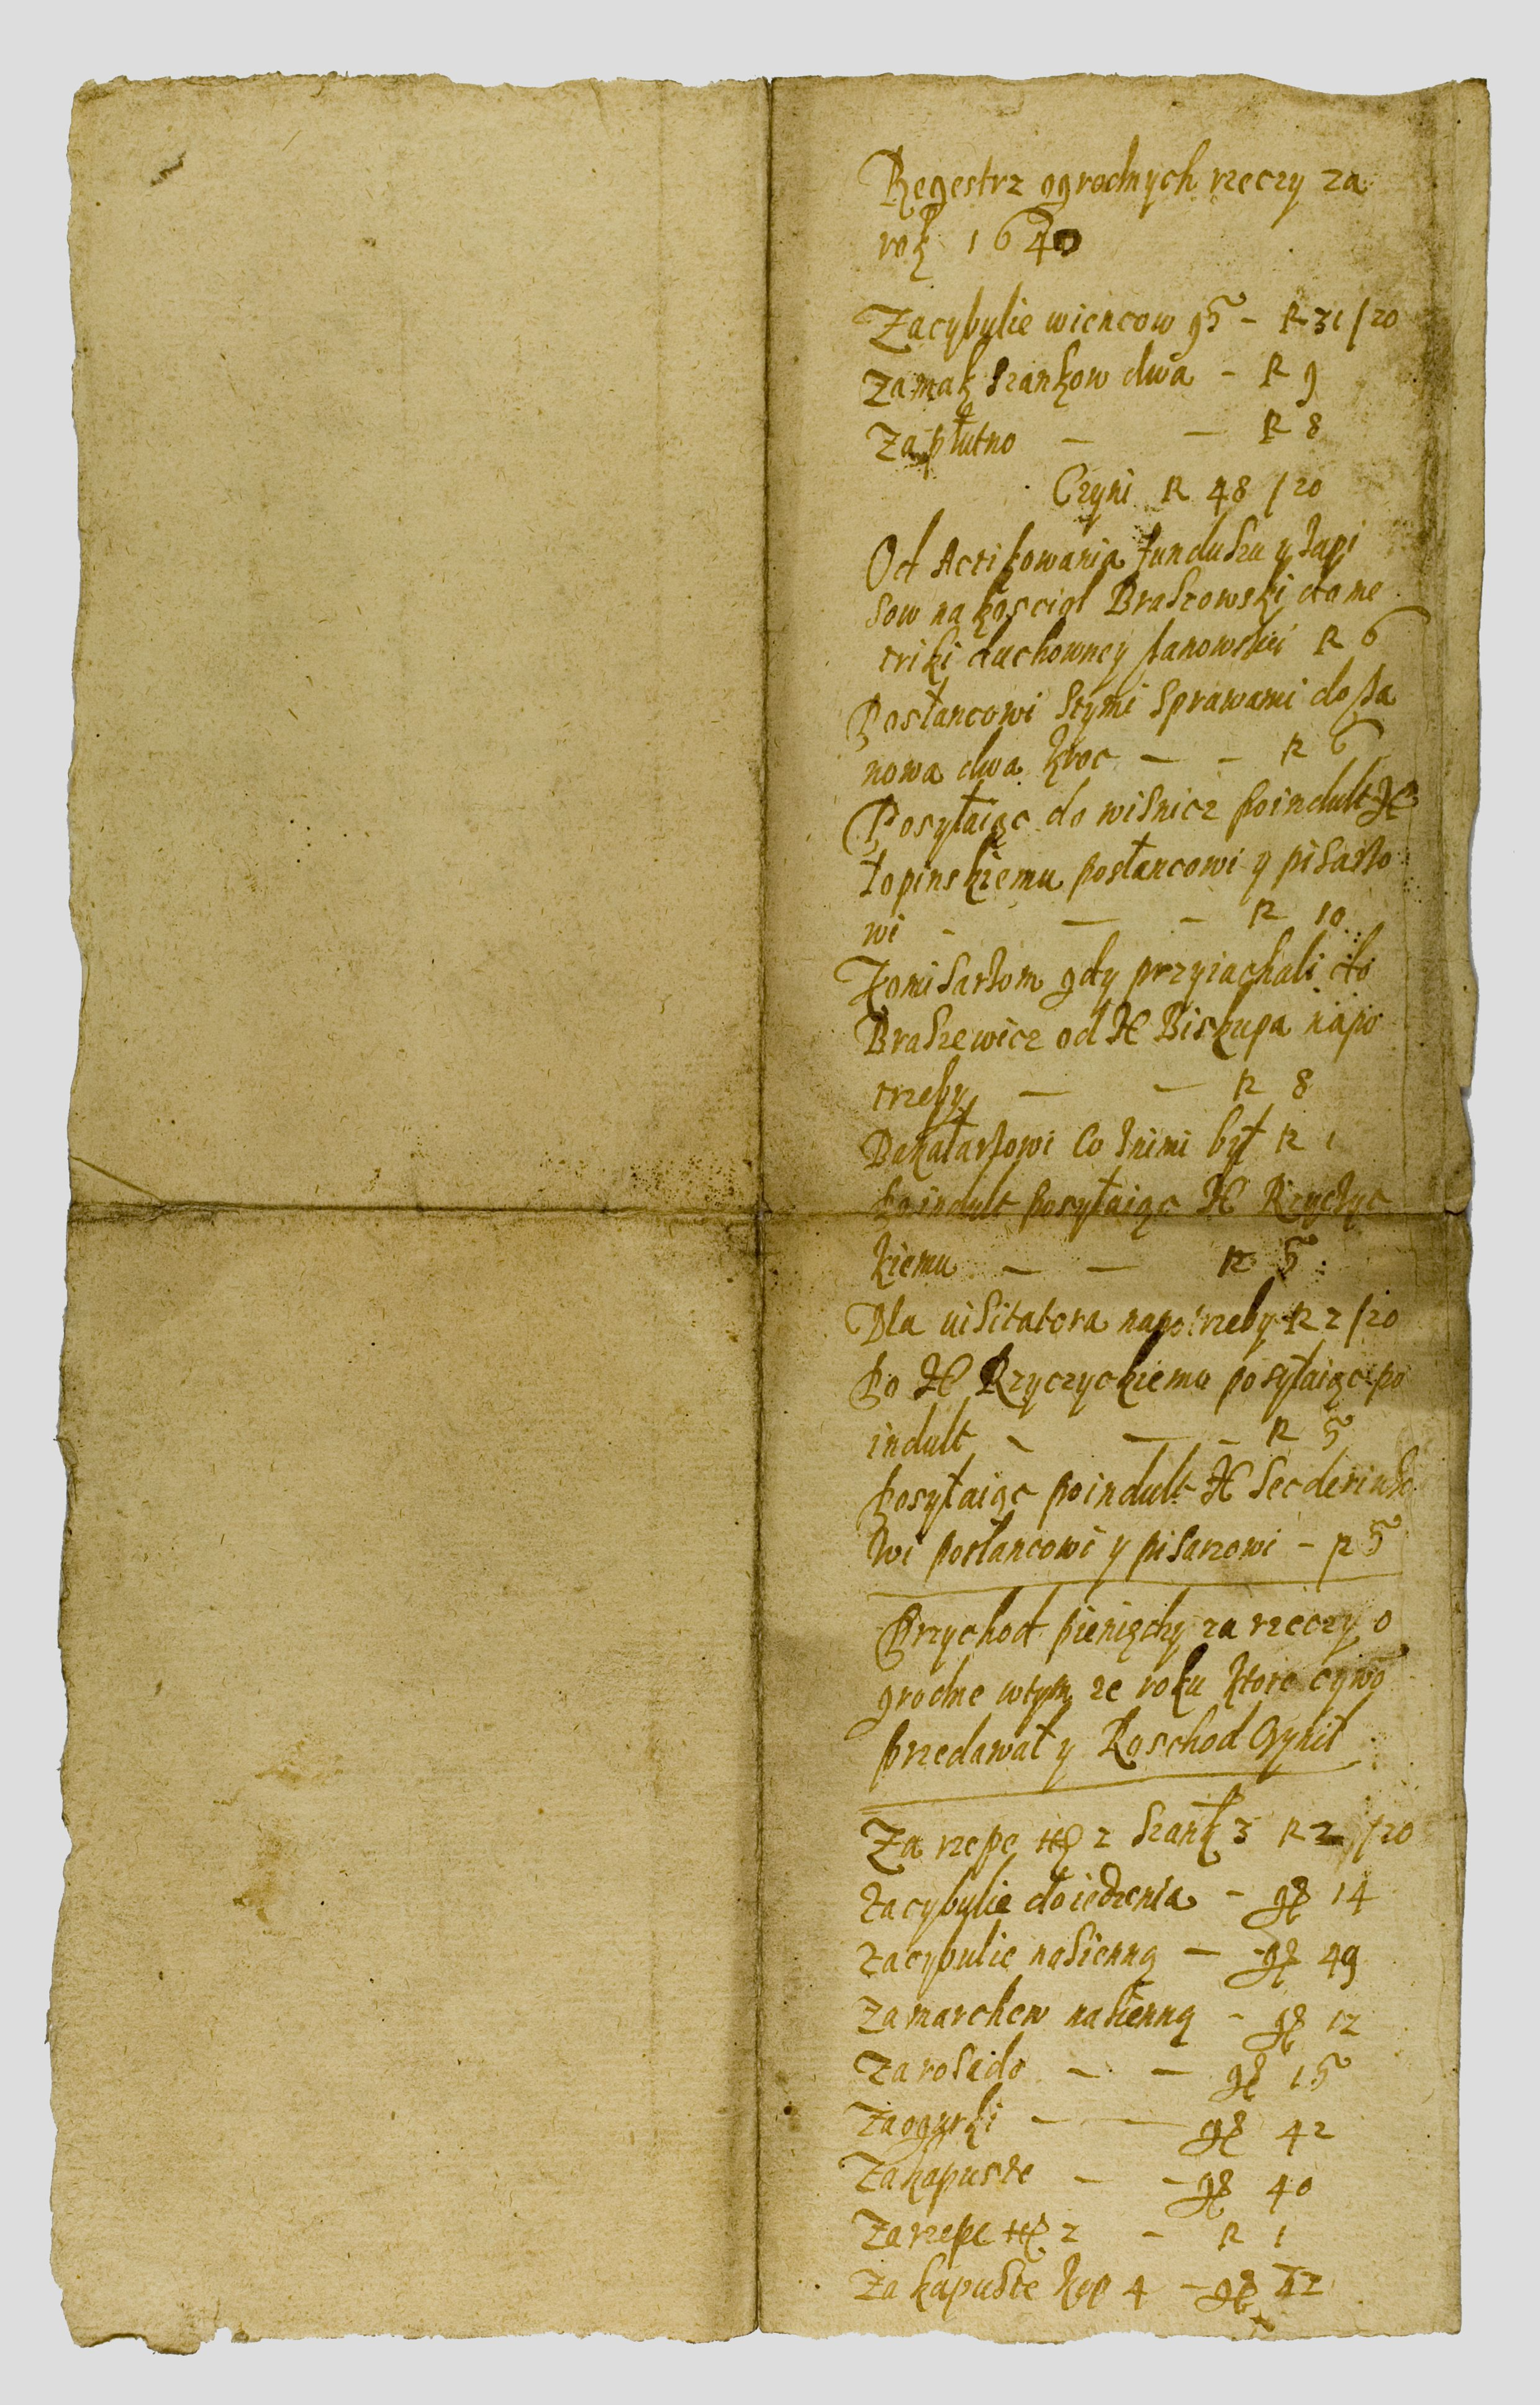 Regestrz ogrodnych rzeczy za
rok 1640
Za cybulie wiencow 95 - R 31/20
Za mak szankow dwa - R 9
Za płutno - - R 8
Czyni R 48 /20
Od Actikowania funduszu y zapi
sow na kosciol Braszowski do me
triki duchowney Janowskiei R 6
Posłancowi stymi sprawami do Ja
nowa dwa kroc - - R 6
Posyłaiąc do wisnicz po indult X
Łopinskiemu posłancowi y pisarzo
wi - - - R 10
Komisarzom gdy przyiachali do
Braszewicz od X Biskupa na po
trzeby - - R 8
Bakałarzowi Co znimi był R 1
Po indult posyłaiąc X Krzyczyc
kiemu - - R 5
Dla uisitatora na potrzeby R 2/20
Po X Krzyczyckiemu posyłaiąc po
indult - - - R 5
Posyłaiąc po indult X
wi posłancowi y pisarzowi - R 5
Przychod pieniędzy za rzeczy o
grodne wtym ze roku ktore cywo
przedawał y Roschod Czynił
Za rzepe 2 szank 3 R 2 /20
Za cybulie do iedzenia - gr 14
Za cybulie nasienną - gr 49
Za marchew nasienną - gr 12
Za rosado - - gr 15
Za ogurki - - gr 42
Za kapuste - - gr 40
Za rzepe 2 - R 1
Za kapuste kop 4 - gr 42